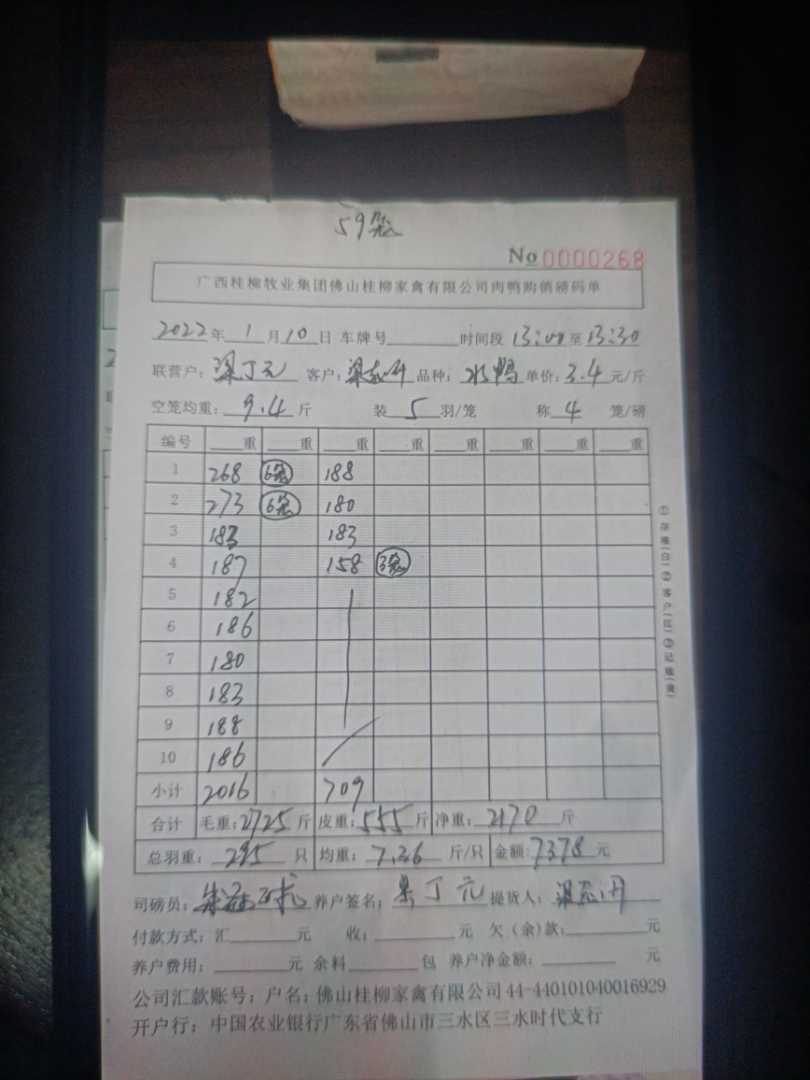 59笼
No 0000268
广西桂柳牧业集团佛山桂柳家禽有限公司肉鸭购销磅码单
2022年1月10日 车牌号 时间段 13:00至13:30
联营户:梁丁元 客户: 品种:水鸭 单价:3.4元/斤
空笼均重:9.4斤 装5羽/笼 称4笼/磅
编号 重 重 重 重 重 重 重 重
1 268 6笼 188
2 273 6笼 180
3 183 183
4 187 158 3笼
5 182
6 186
7 180
8 183
9 188
10 186
小计 2016 709
合计 毛重:2725斤 皮重:555斤 净重:2170斤
总羽重:295只 均重:7.36斤/只 金额:7378元
司磅员: 养户签名:梁丁元 提货人:
付款方式:汇 元 收: 元 欠(余)款: 元
养户费用: 元 余料 包 养户净金额: 元
公司汇款账号:户名:佛山桂柳家禽有限公司44-440101040016929
开户行:中国农业银行广东省佛山市三水区三水时代支行
①存根(白)②客户(红)③记账(黄)